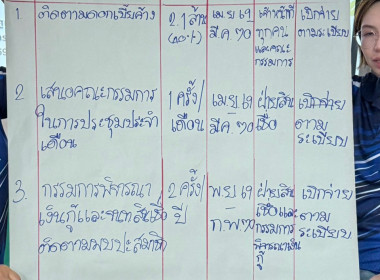 1. ติดตามดอกเบี้ยค้าง 2.1 ล้าน เม.ย 69 เจ้าหน้าที่ เบิกจ่าย
(100%) มี.ค. 70 ทุกคน ตามระเบียบ
และคณะ
กรรมการ
2. เสนอคณะกรรมการ 1 ครั้ง/ เม.ย 69 ฝ่ายสิน เบิกจ่าย
ในการประชุมประจำ เดือน มี.ค. 70 เชื่อ ตาม
เดือน ระเบียบ
3. กรรมการพิจารณา 2 ครั้ง/ พ.ย 69 ฝ่ายสิน เบิกจ่าย
เงินกู้และฝ่ายสินเชื่อ ปี ก.พ 70 เชื่อและ ตาม
ติดตามพบปะสมาชิก กรรมการ ระเบียบ
พิจารณาเงิน
กู้